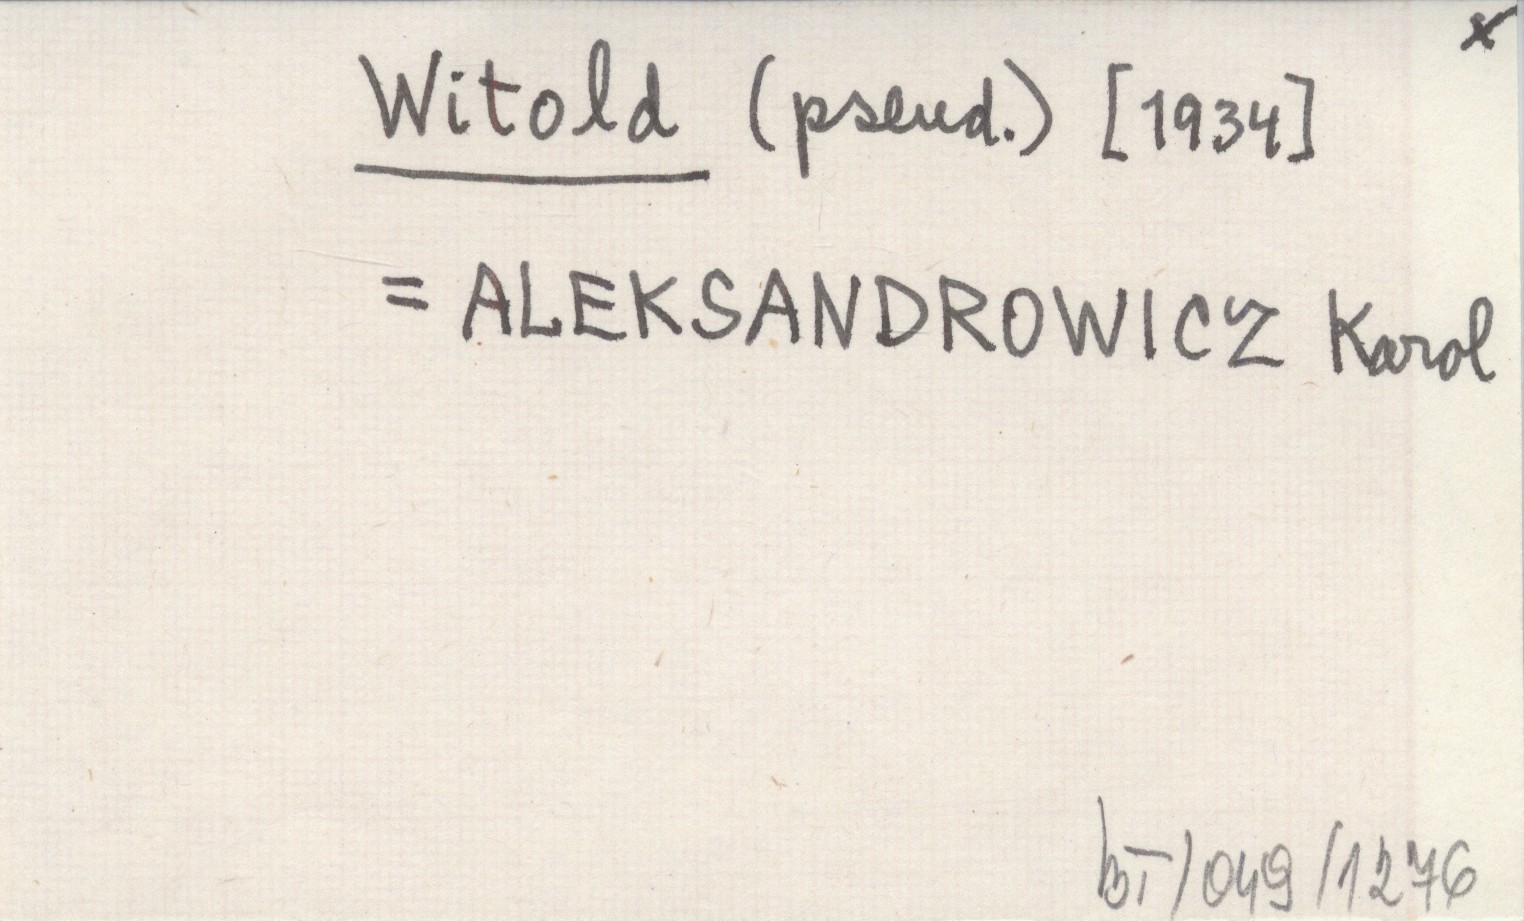 x
Witold (pseud.) [1934]
= ALEKSANDROWICZ Karol
bI/049/1276